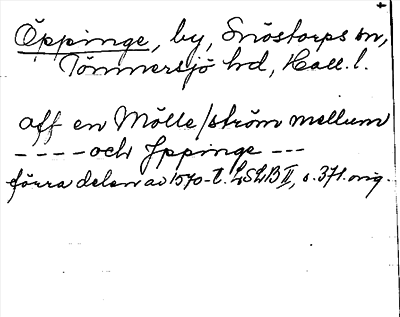 Öppinge, by, Snöstorps sn,
Tönnersjö hd, Hall. l.
aff en Mölle/ström mellum
---- och Jppinge ---
förra delen av 1570-t. LSLB II, s. 371. orig.